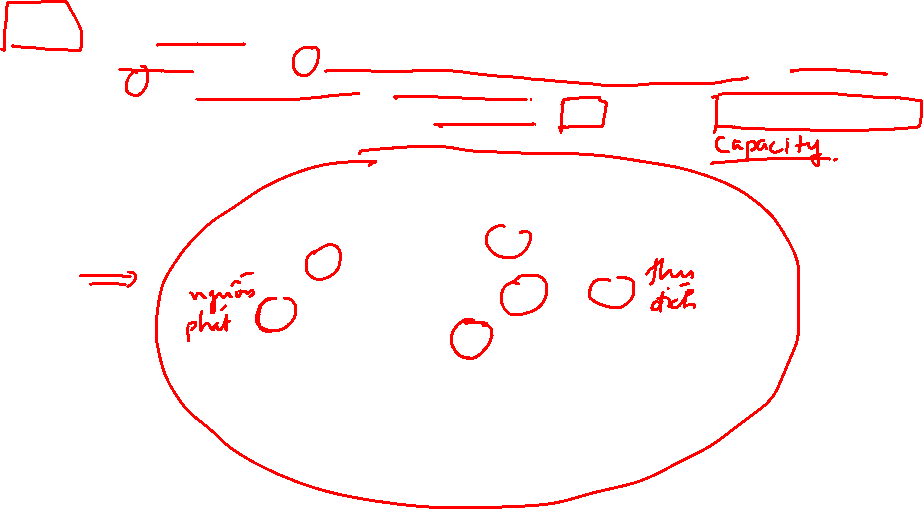 Capacity.
nguồn
phát
thu
đích